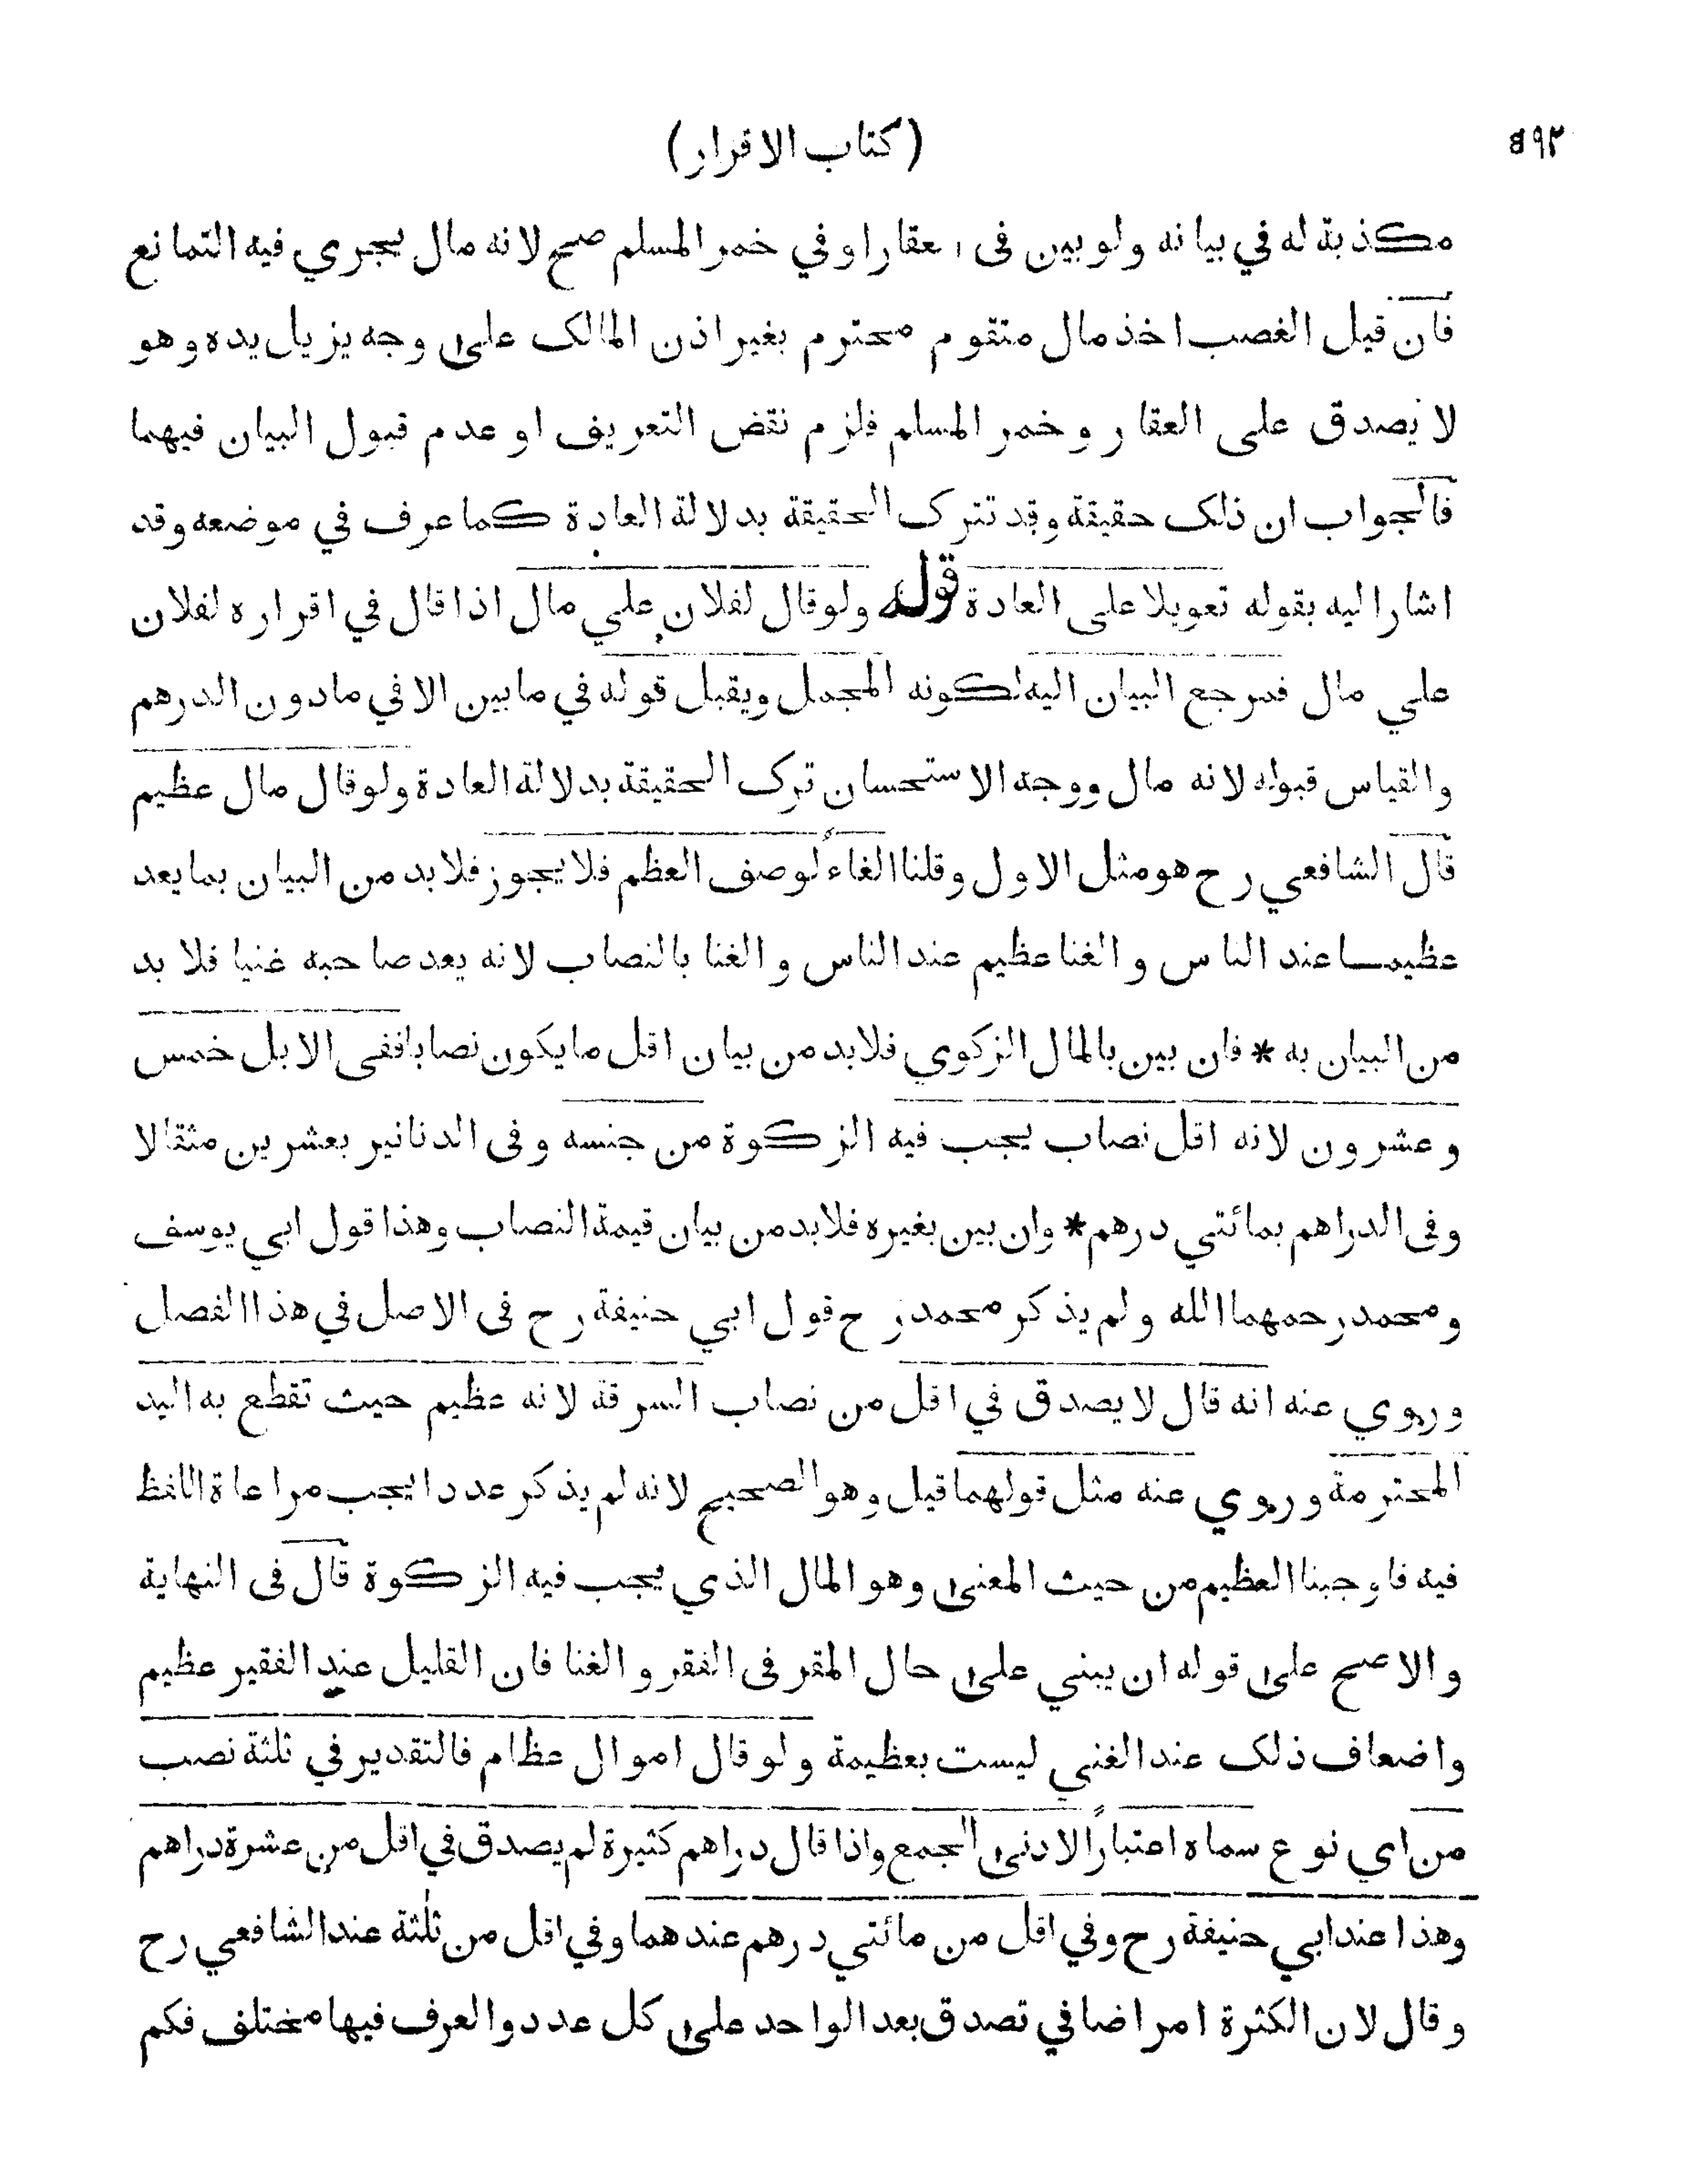 ٥٩٢ (كتاب الاقرار)
مكذبة له في بيانه ولو بين فى العقار او في خمر المسلم صح لانه مال يجري فيه التمانع
فان قيل الغصب اخذ مال متقوم محترم بغير اذن المالك على وجه يزيل يده وهو
لا يصدق على العقار وخمر المسلم فلزم نقض التعريف او عدم قبول البيان فيهما
فالجواب ان ذلك حقيقة وقد تترك الحقيقة بدلالة العادة كما عرف في موضعه وقد
اشار اليه بقوله تعويلا على العادة قوله ولو قال لفلان علي مال اذا قال في اقراره لفلان
علي مال فمرجع البيان اليه لكونه المجمل ويقبل قوله في ما بين الا في ما دون الدرهم
والقياس قبوله لانه مال ووجه الاستحسان ترك الحقيقة بدلالة العادة ولو قال مال عظيم
قال الشافعي رح هو مثل الاول وقلنا الغاءً لوصف العظم فلا يجوز فلا بد من البيان بما يعد
عظيما عند الناس والغنا عظيم عند الناس والغنا بالنصاب لانه يعد صاحبه غنيا فلا بد
من البيان به * فان بين بالمال الزكوي فلا بد من بيان اقل ما يكون نصابا ففى الابل خمس
وعشرون لانه اقل نصاب يجب فيه الزكوة من جنسه وفى الدنانير بعشرين مثقالا
وفى الدراهم بمائتي درهم * وان بين بغيره فلا بد من بيان قيمة النصاب وهذا قول ابي يوسف
ومحمد رحمهما الله ولم يذكر محمد رح قول ابي حنيفة رح فى الاصل في هذا الفصل
وروي عنه انه قال لا يصدق في اقل من نصاب السرقة لانه عظيم حيث تقطع به اليد
المحترمة وروي عنه مثل قولهما قيل وهو الصحيح لانه لم يذكر عددا يجب مراعاة اللفظ
فيه فاوجبنا العظيم من حيث المعنى وهو المال الذي يجب فيه الزكوة قال فى النهاية
والاصح على قوله ان يبني على حال المقر فى الفقر والغنا فان القليل عند الفقير عظيم
واضعاف ذلك عند الغني ليست بعظيمة ولو قال اموال عظام فالتقدير في ثلثة نصب
من اي نوع سماه اعتبارًا لادنى الجمع واذا قال دراهم كثيرة لم يصدق في اقل من عشرة دراهم
وهذا عند ابي حنيفة رح وفي اقل من مائتي درهم عندهما وفي اقل من ثلثة عند الشافعي رح
وقال لان الكثرة امر اضافي تصدق بعد الواحد على كل عدد والعرف فيها مختلف فكم